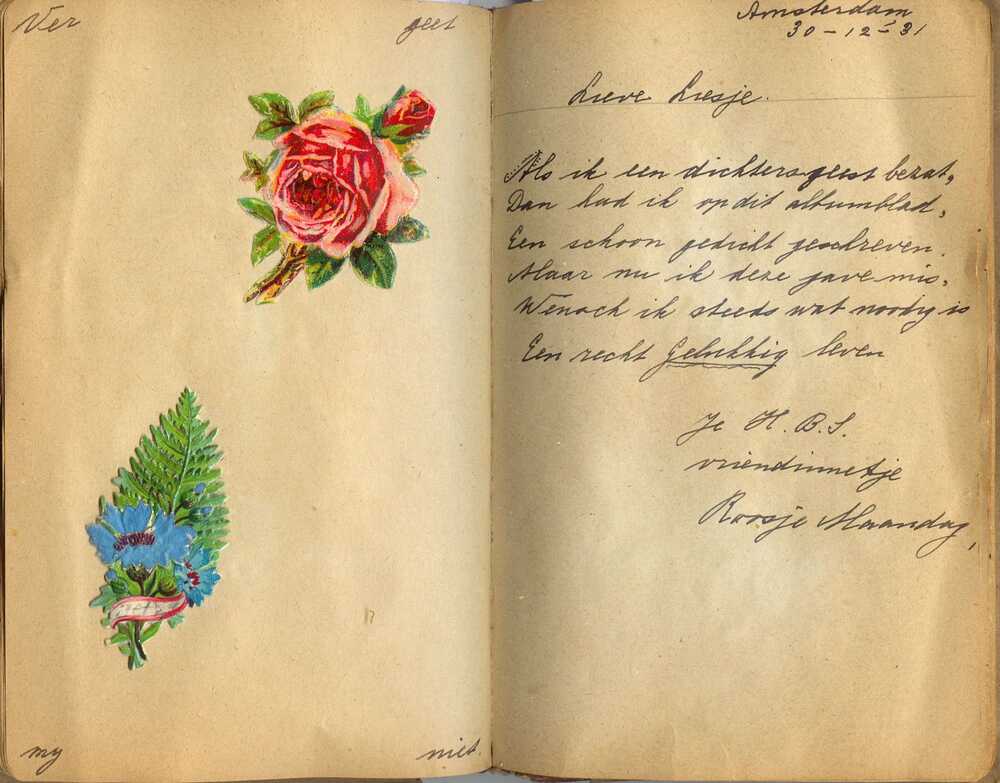 Ver geet
my niet.
Amsterdam
30-12-'31
Lieve Liesje.
Als ik een dichtersgeest bezat,
Dan had ik op dit albumblad,
Een schoon gedicht geschreven.
Maar nu ik deze gave mis,
Wensch ik steeds wat noodig is
Een recht Gelukkig leven
Je H.B.S.
vriendinnetje
Roosje Maandag,